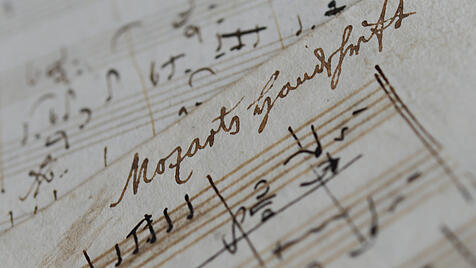 Mozarts Handschrift